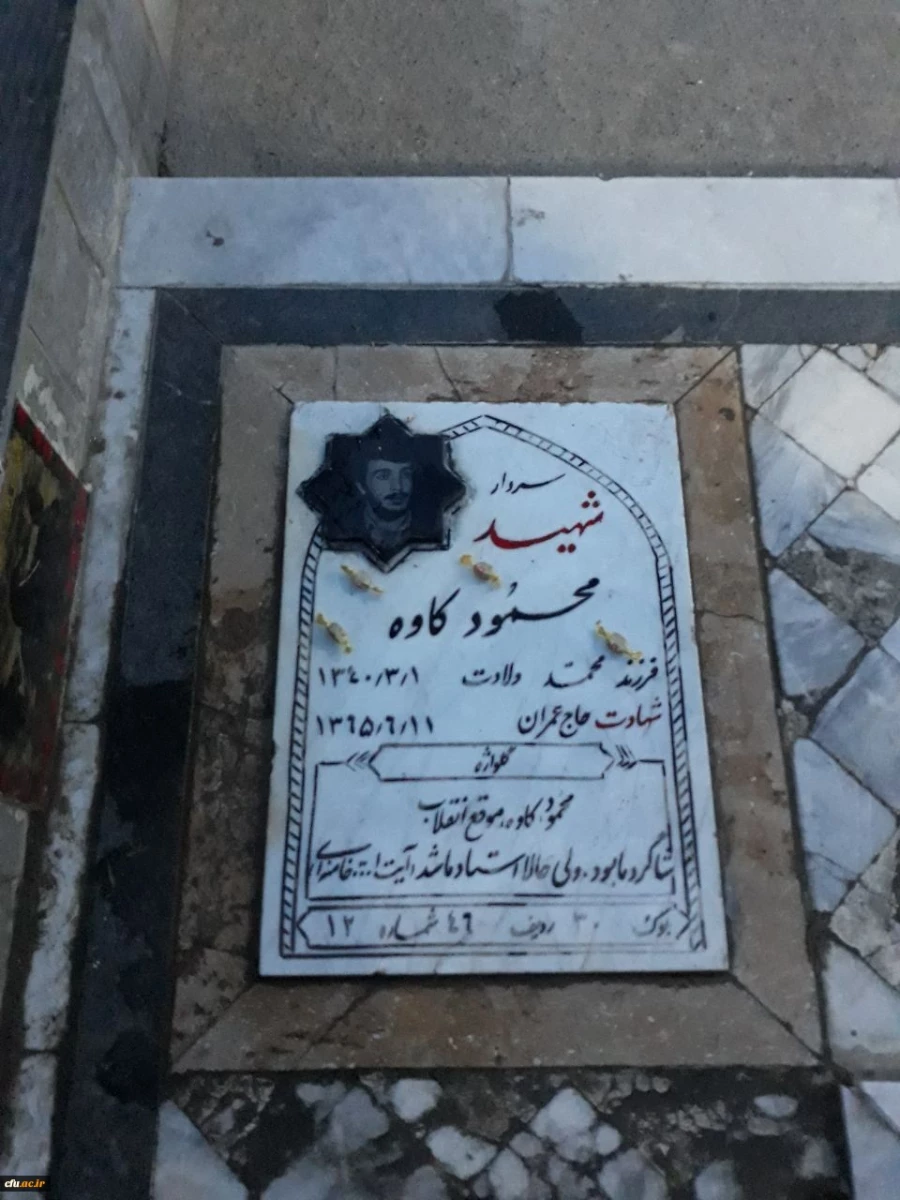 سردار
شهید
محمُود کاوه
فرزند محمّد ولادت ۱۳٤۰/۳/۱
شهادت حاج عمران ۱۳٦۵/٦/۱۱
گلواژه
محمود کاوه، موقع انقلاب
شاگرد ما بود. ولی حالا استاد ما شد، آیت الله خامنه ای
بلوک ۳۰ ردیف ٤٦ شماره ۱۲
cfu.ac.ir